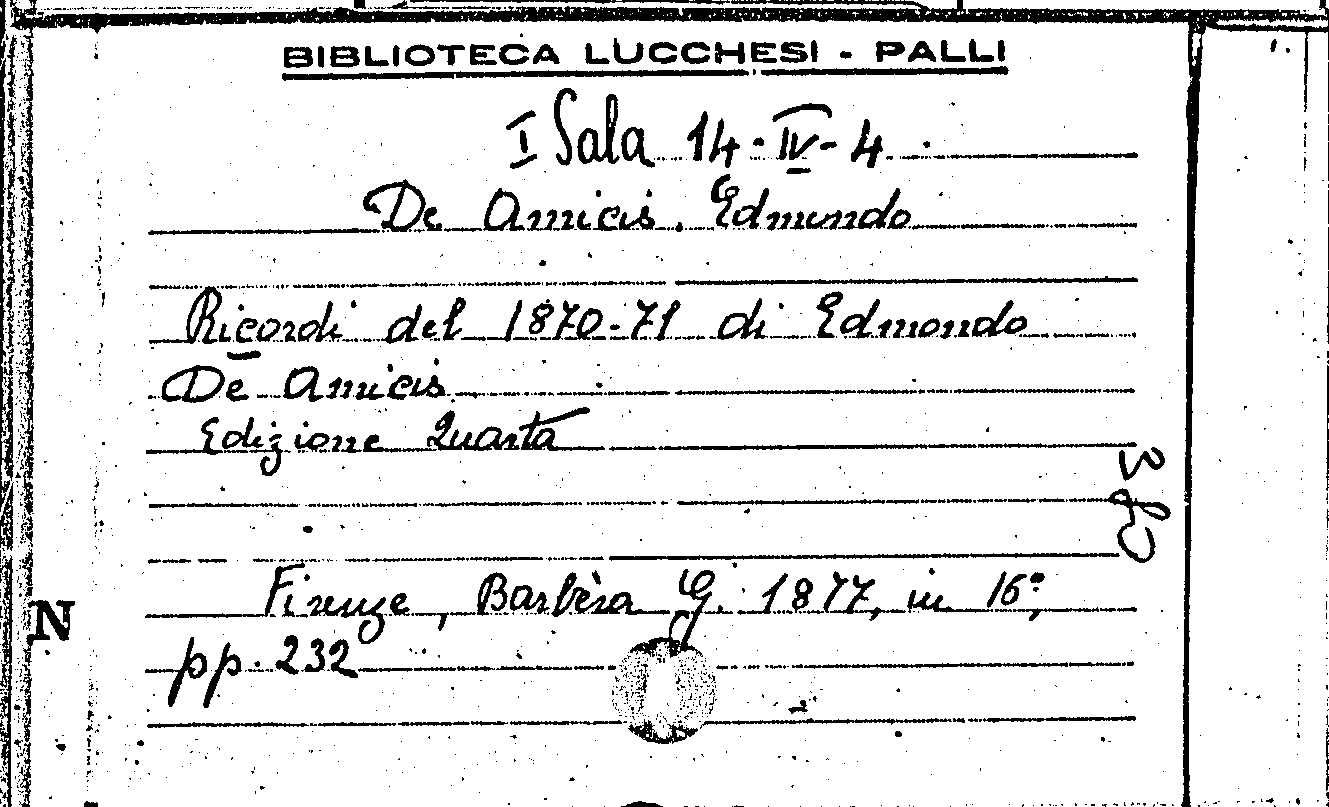 BIBLIOTECA LUCCHESI - PALLI
I Sala 14-IV-4
De Amicis, Edmundo
Ricordi del 1870-71 di Edmondo
De Amicis
Edizione Quarta
Firenze, Barbèra G. 1877, in 16°,
pp. 232
N